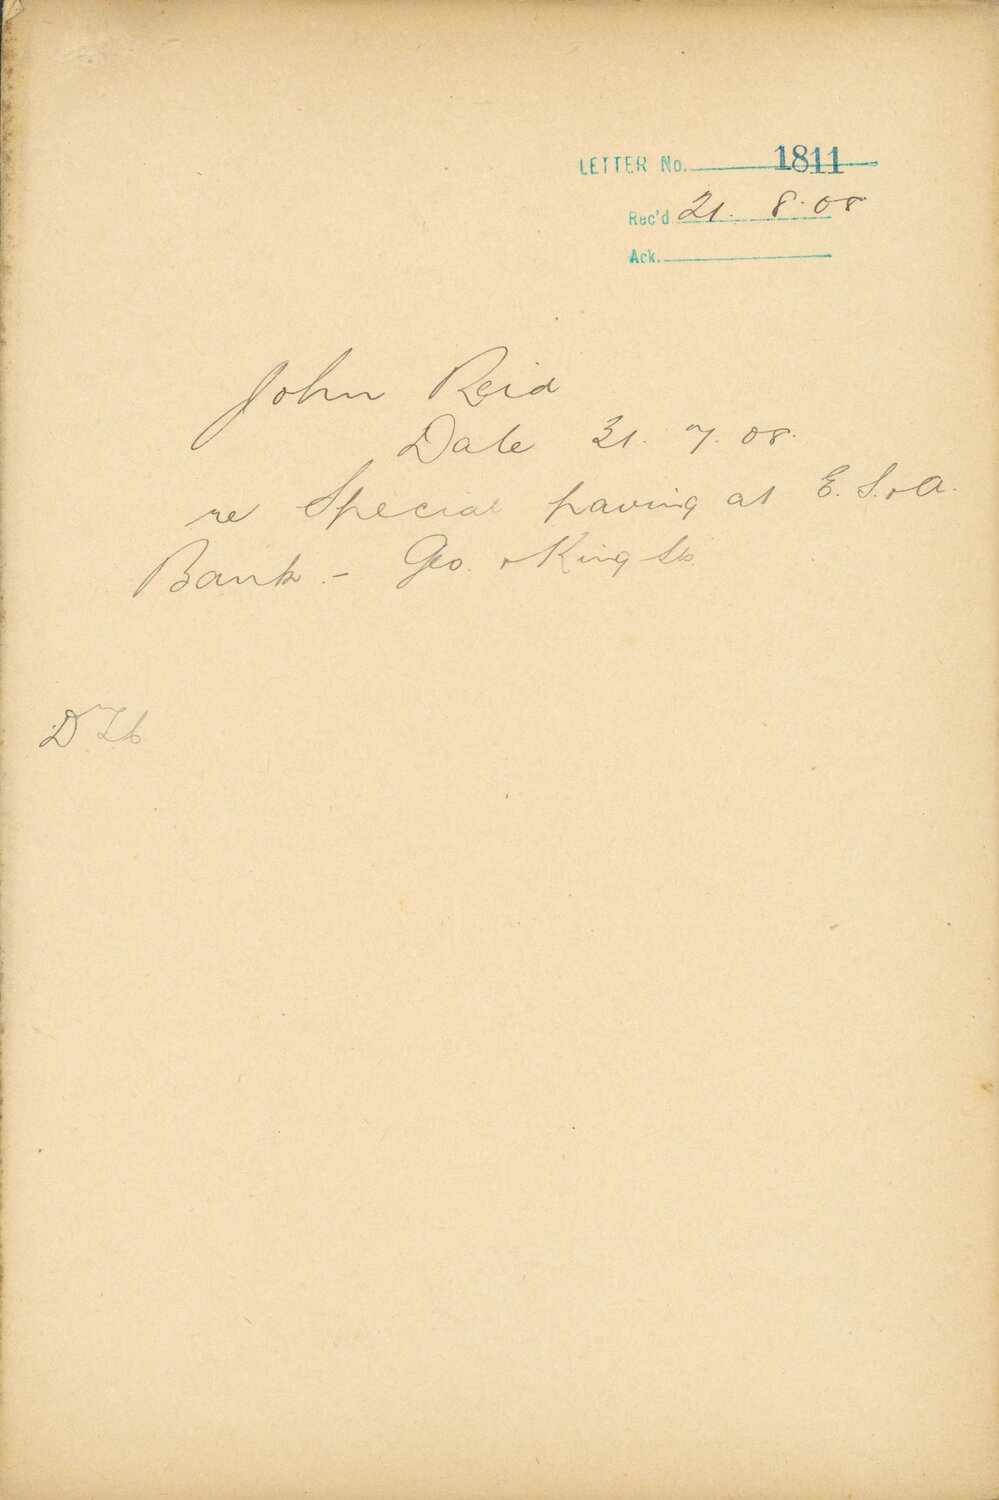 LETTER No. 1811
Rec'd 21. 8. 08
Ack.
John Reid
Date 31. 7. 08.
re Special paving at E. S. & A.
Bank. - Geo. & King Sts.